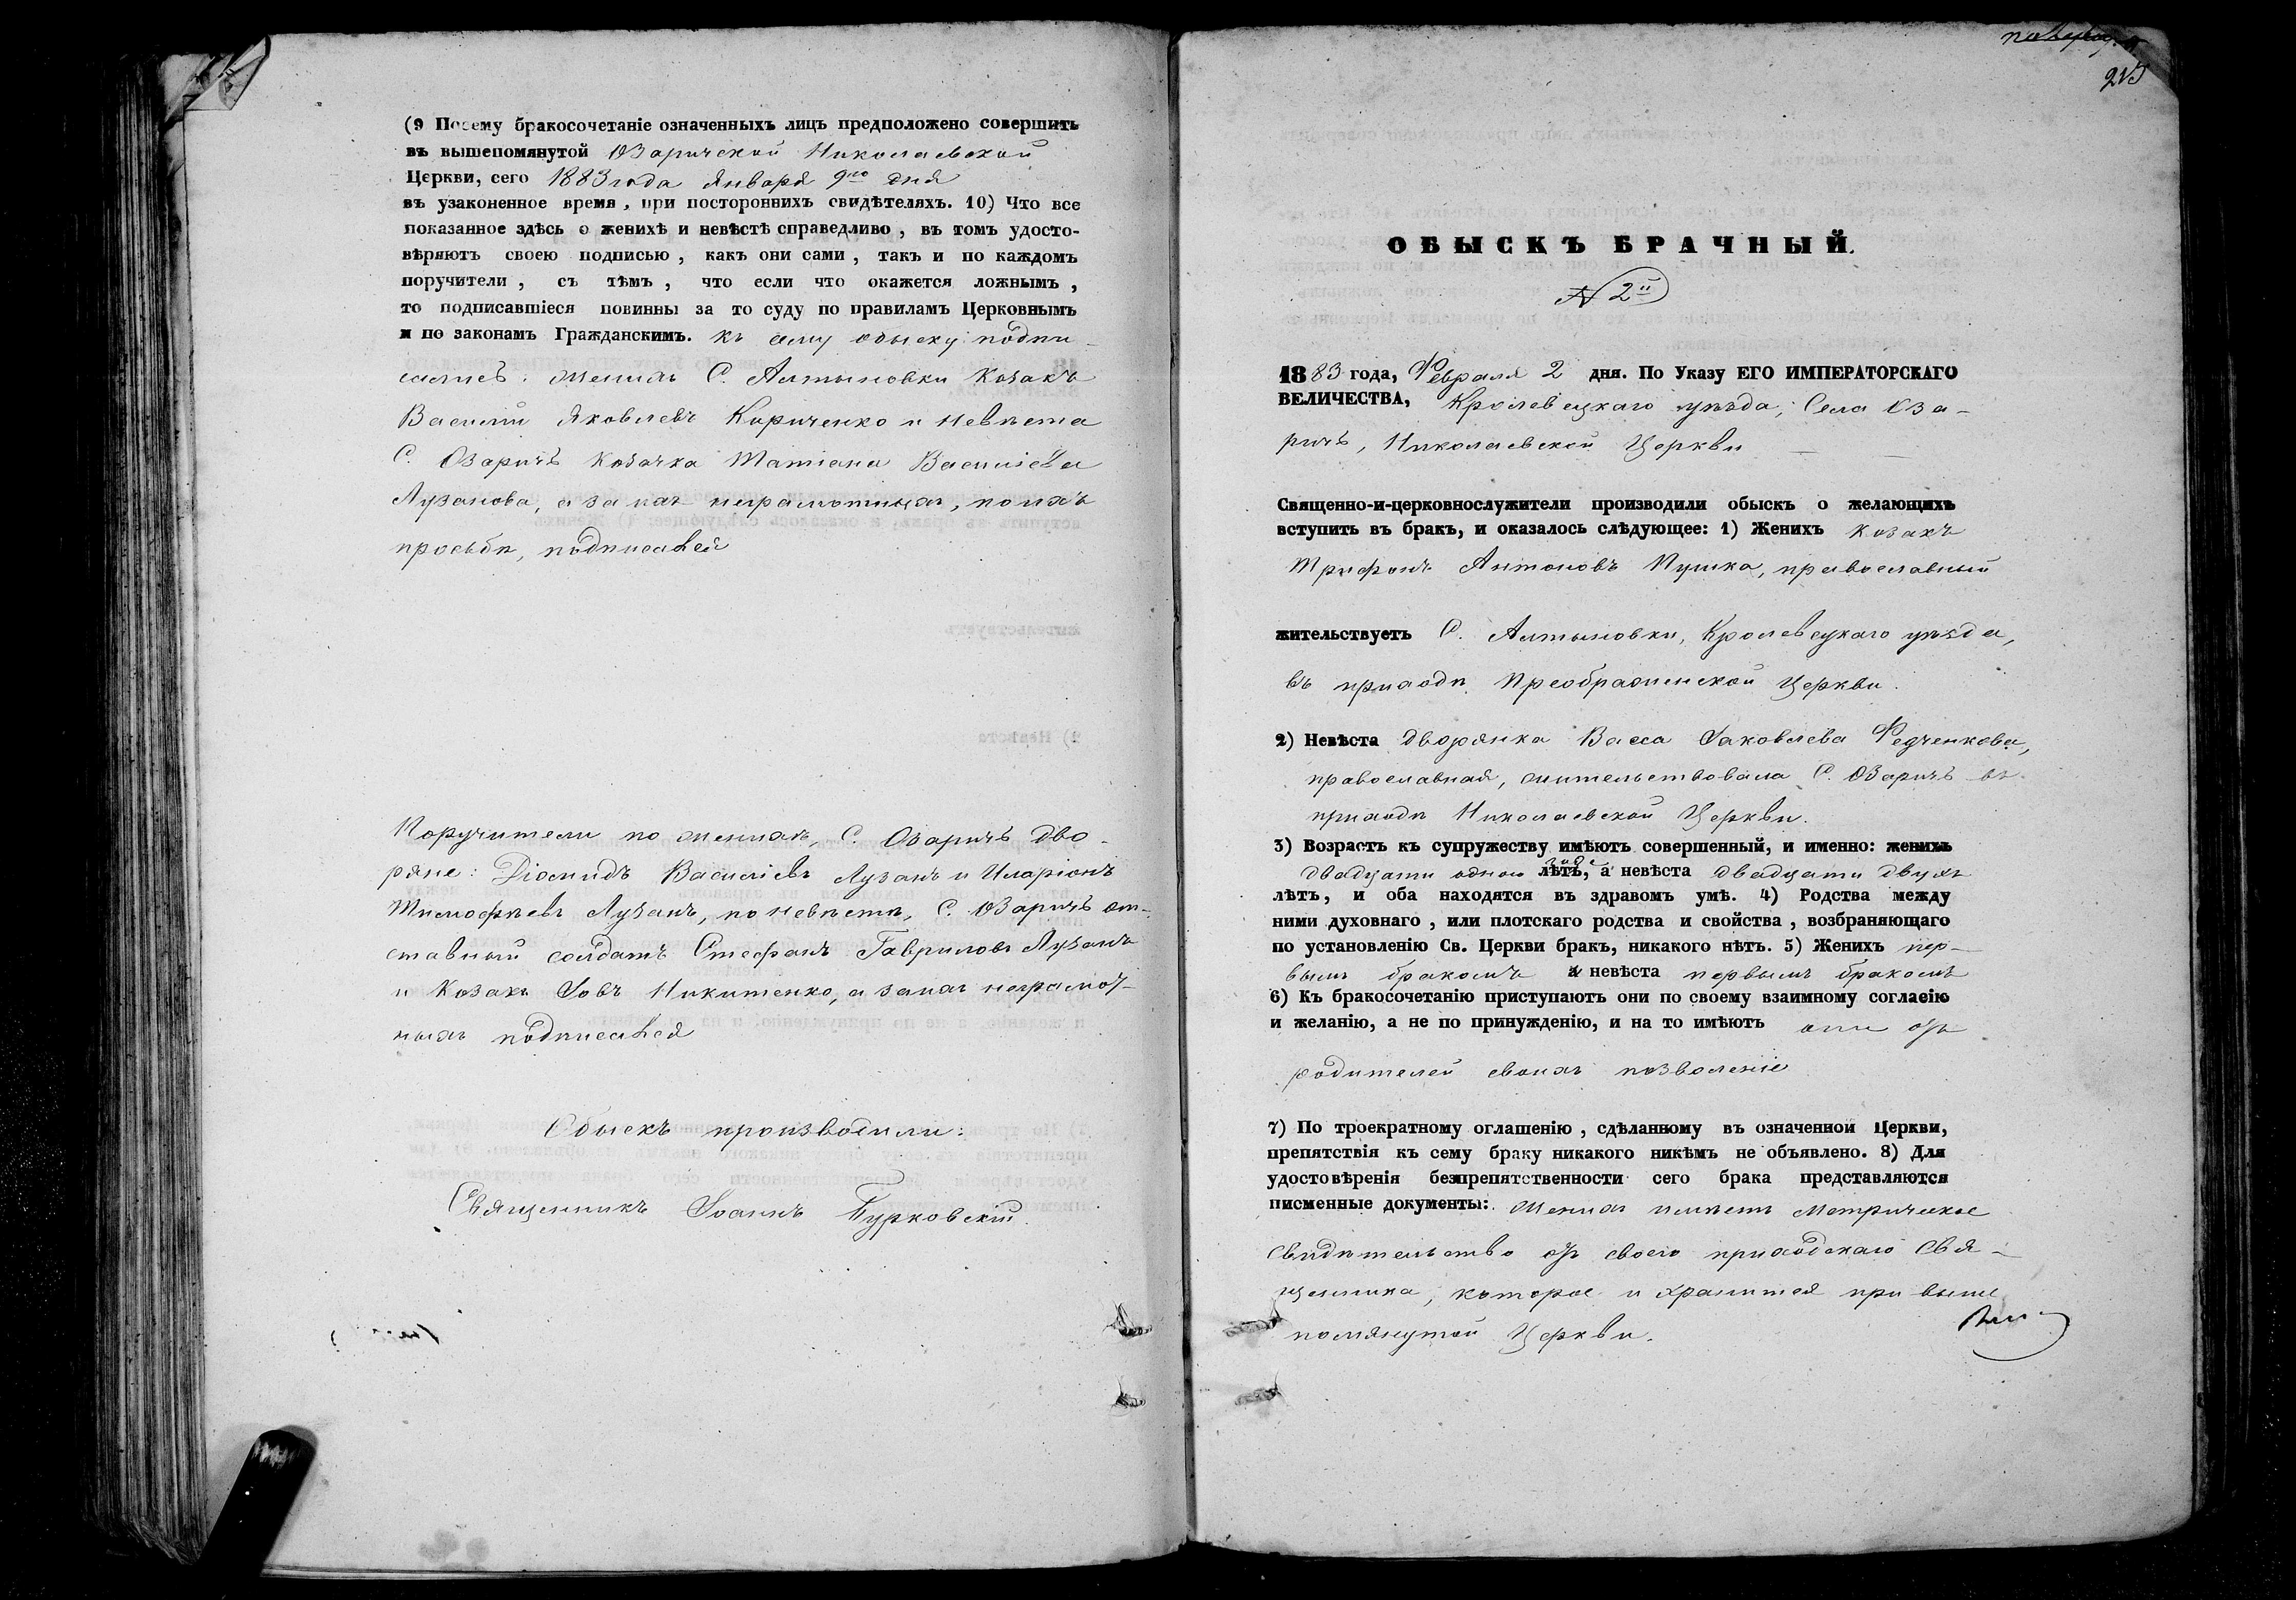 (9 Посему бракосочетаніе означенныхъ лицъ предположено совершить
въ вышепомянутой Озаричской Николаевской
Церкви, сего 1883 года Января 9го дня
въ узаконенное время, при постороннихъ свидѣтеляхъ. 10) Что все
показанное здѣсь о женихѣ и невѣстѣ справедливо, въ томъ удосто-
вѣряютъ своею подписью, какъ они сами, такъ и по каждомъ
поручители, съ тѣмъ, что если что окажется ложнымъ,
то подписавшіеся повинны за то суду по правиламъ Церковнымъ
и по законамъ Гражданскимъ. Къ сему обыску подпи-
сались: женихъ С. Алтыновки Козакъ
Василій Яковлевъ Кириченко и невѣста
С. Озаричъ козачка Татіана Василіева
Лузанова, а за нихъ неграмотныхъ, по ихъ
просьбѣ, подписался
Поручители по женихѣ, С. Озаричъ дво-
ряне: Діомидъ Василіевъ Лузанъ и Иларіонъ
Тимофѣевъ Лузанъ, по невѣстѣ, С. Озаричъ от-
ставный солдатъ Стефанъ Гавриловъ Лузанъ
и Козакъ Іовъ Никитенко, а за нихъ неграмот-
ныхъ подписался
Обыскъ производили:
Священникъ Іоаннъ Бурковскій.
215
ОБЫСКЪ БРАЧНЫЙ.
N 2й
1883 года, Февраля 2 дня. По Указу ЕГО ИМПЕРАТОРСКАГО
ВЕЛИЧЕСТВА, Кролевецкаго уѣзда, Села Оза-
ричъ, Николаевской Церкви
Священно-и-церковнослужители производили обыскъ о желающихъ
вступить въ бракъ, и оказалось слѣдующее: 1) Женихъ Козакъ
Трифонъ Антоновъ Пушка, православный
жительствуетъ С. Алтыновки, Кролевецкаго уѣзда,
въ приходѣ Преображенской Церкви.
2) Невѣста дворянка Васса Іаковлева Федченкова,
православная, жительствовала С. Озаричъ въ
приходѣ Николаевской Церкви.
3) Возрастъ къ супружеству имѣютъ совершенный, и именно: женихъ
двадцати одного года лѣтъ, а невѣста двадцати двухъ
лѣтъ, и оба находятся въ здравомъ умѣ. 4) Родства между
ними духовнаго, или плотскаго родства и свойства, возбраняющаго
по установленію Св. Церкви бракъ, никакого нѣтъ. 5) Женихъ пер-
вымъ бракомъ и невѣста первымъ бракомъ
6) Къ бракосочетанію приступаютъ они по своему взаимному согласію
и желанію, а не по принужденію, и на то имѣютъ они отъ
родителей своихъ позволеніе
7) По троекратному оглашенію, сдѣланному въ означенной Церкви,
препятствія къ сему браку никакого никѣмъ не объявлено. 8) Для
удостовѣренія безпрепятственности сего брака представляются
писменные документы: Женихъ имѣетъ метрическое
свидѣтельство отъ своего приходскаго Свя-
щенника, которое и хранится при выше
помянутой Церкви.